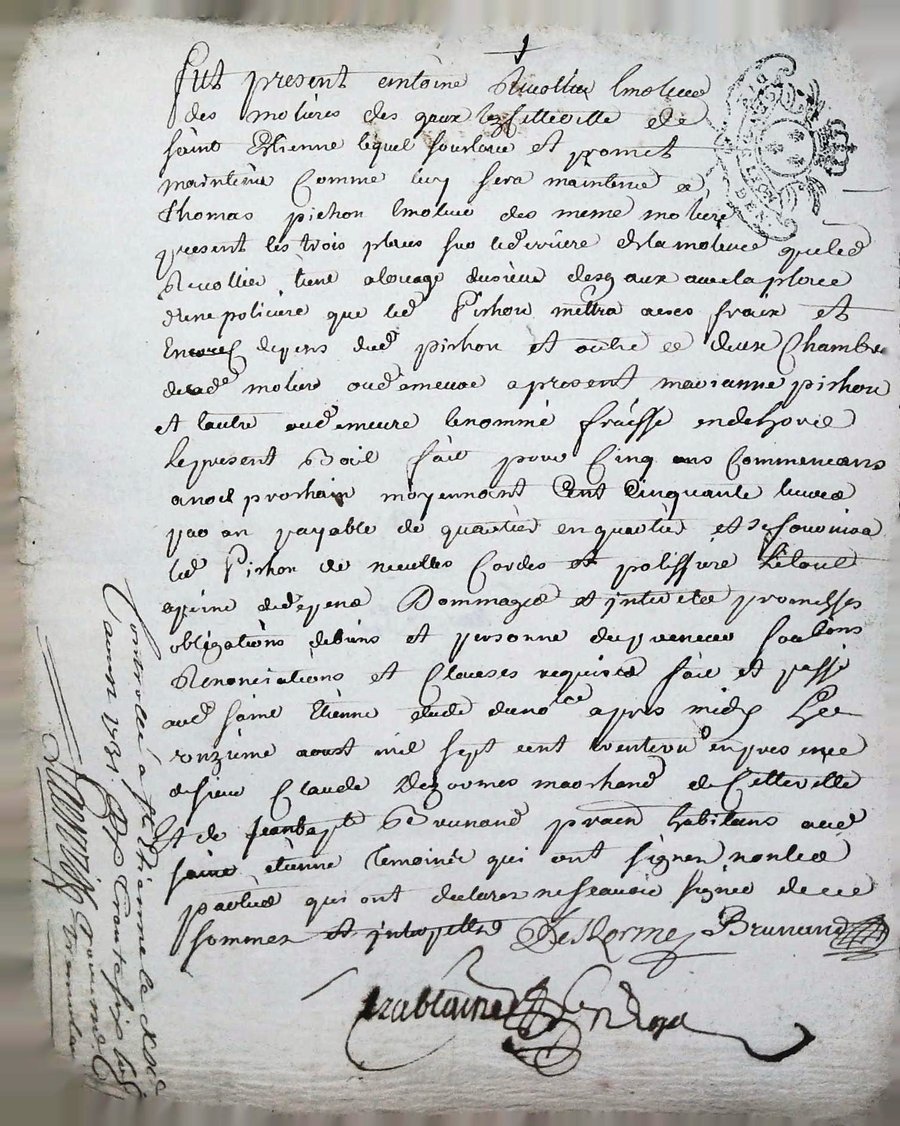 fut present antoine Revollier Emoleur
des molières des gaux lez cette ville de
saint Etienne lequel sous loue et promet
maintenir comme luy sera maintenue a
Thomas pichon Emoleur des meme molière
present les trois places sur le derriere de la moleure que led
Revollier tient a louage du sieur desgaux avec la place
d'une policiere que led Pichon mettra a ses fraix et
Encore depens dud pichon et outre ce deux chambre
de lad moliere ou demeure a present marianne pichon
et lautre ou demeure le nommé fraisse en dehors
Le present Bail fait pour cinq ans commencans
a noel prochain moyennant Cent Cinquante livres
par an payable de quartier en quartier et se fournira
led Pichon de meulles cordes et polissoire Le tout
a peine de depens Dommages et interets promesses
obligations de biens et personne du preneur soumis
Renonciations et clauses requises fait et passé
aud saint Etienne etude du nore apres midy Le
onzieme aoust mil sept cent trente un en presence
de sieur Claude Desgormes marchand de Cette ville
Et de jean bapt Brunand pratn habitans aud
saint etienne temoins qui ont signer non les
parties qui ont declarer ne scavoir signer de ce
sommer et interpelles DesHormes Brunand
Controllé à St Etienne le
aoust 1731